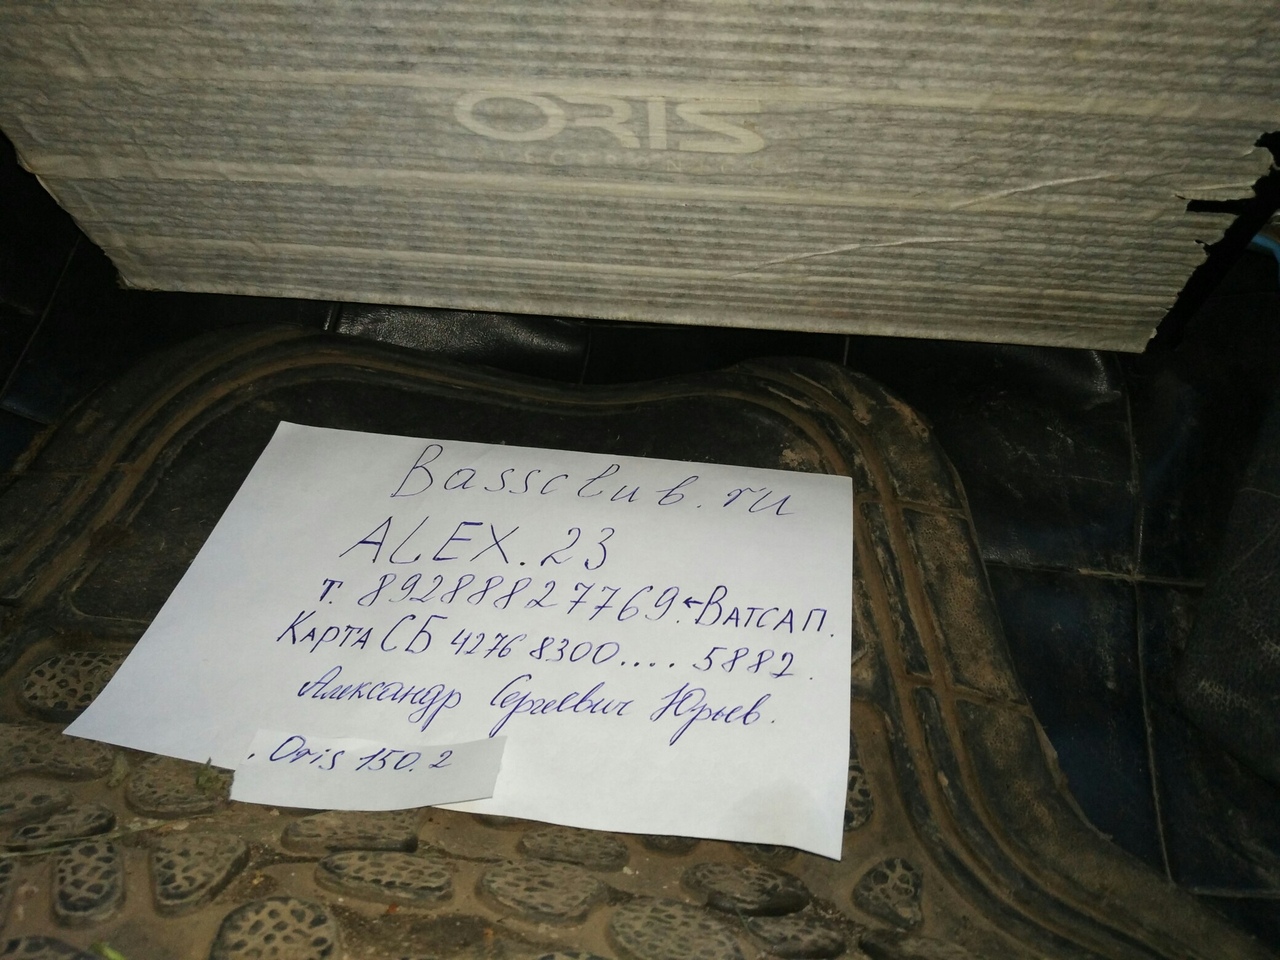 ORIS
Bassclub.ru
ALEX.23
т. 89288827769. ←ВАТСАП.
КАРТА СБ 4276 8300.... 5882.
Александр Сергеевич Юрьев.
. Oris 150.2